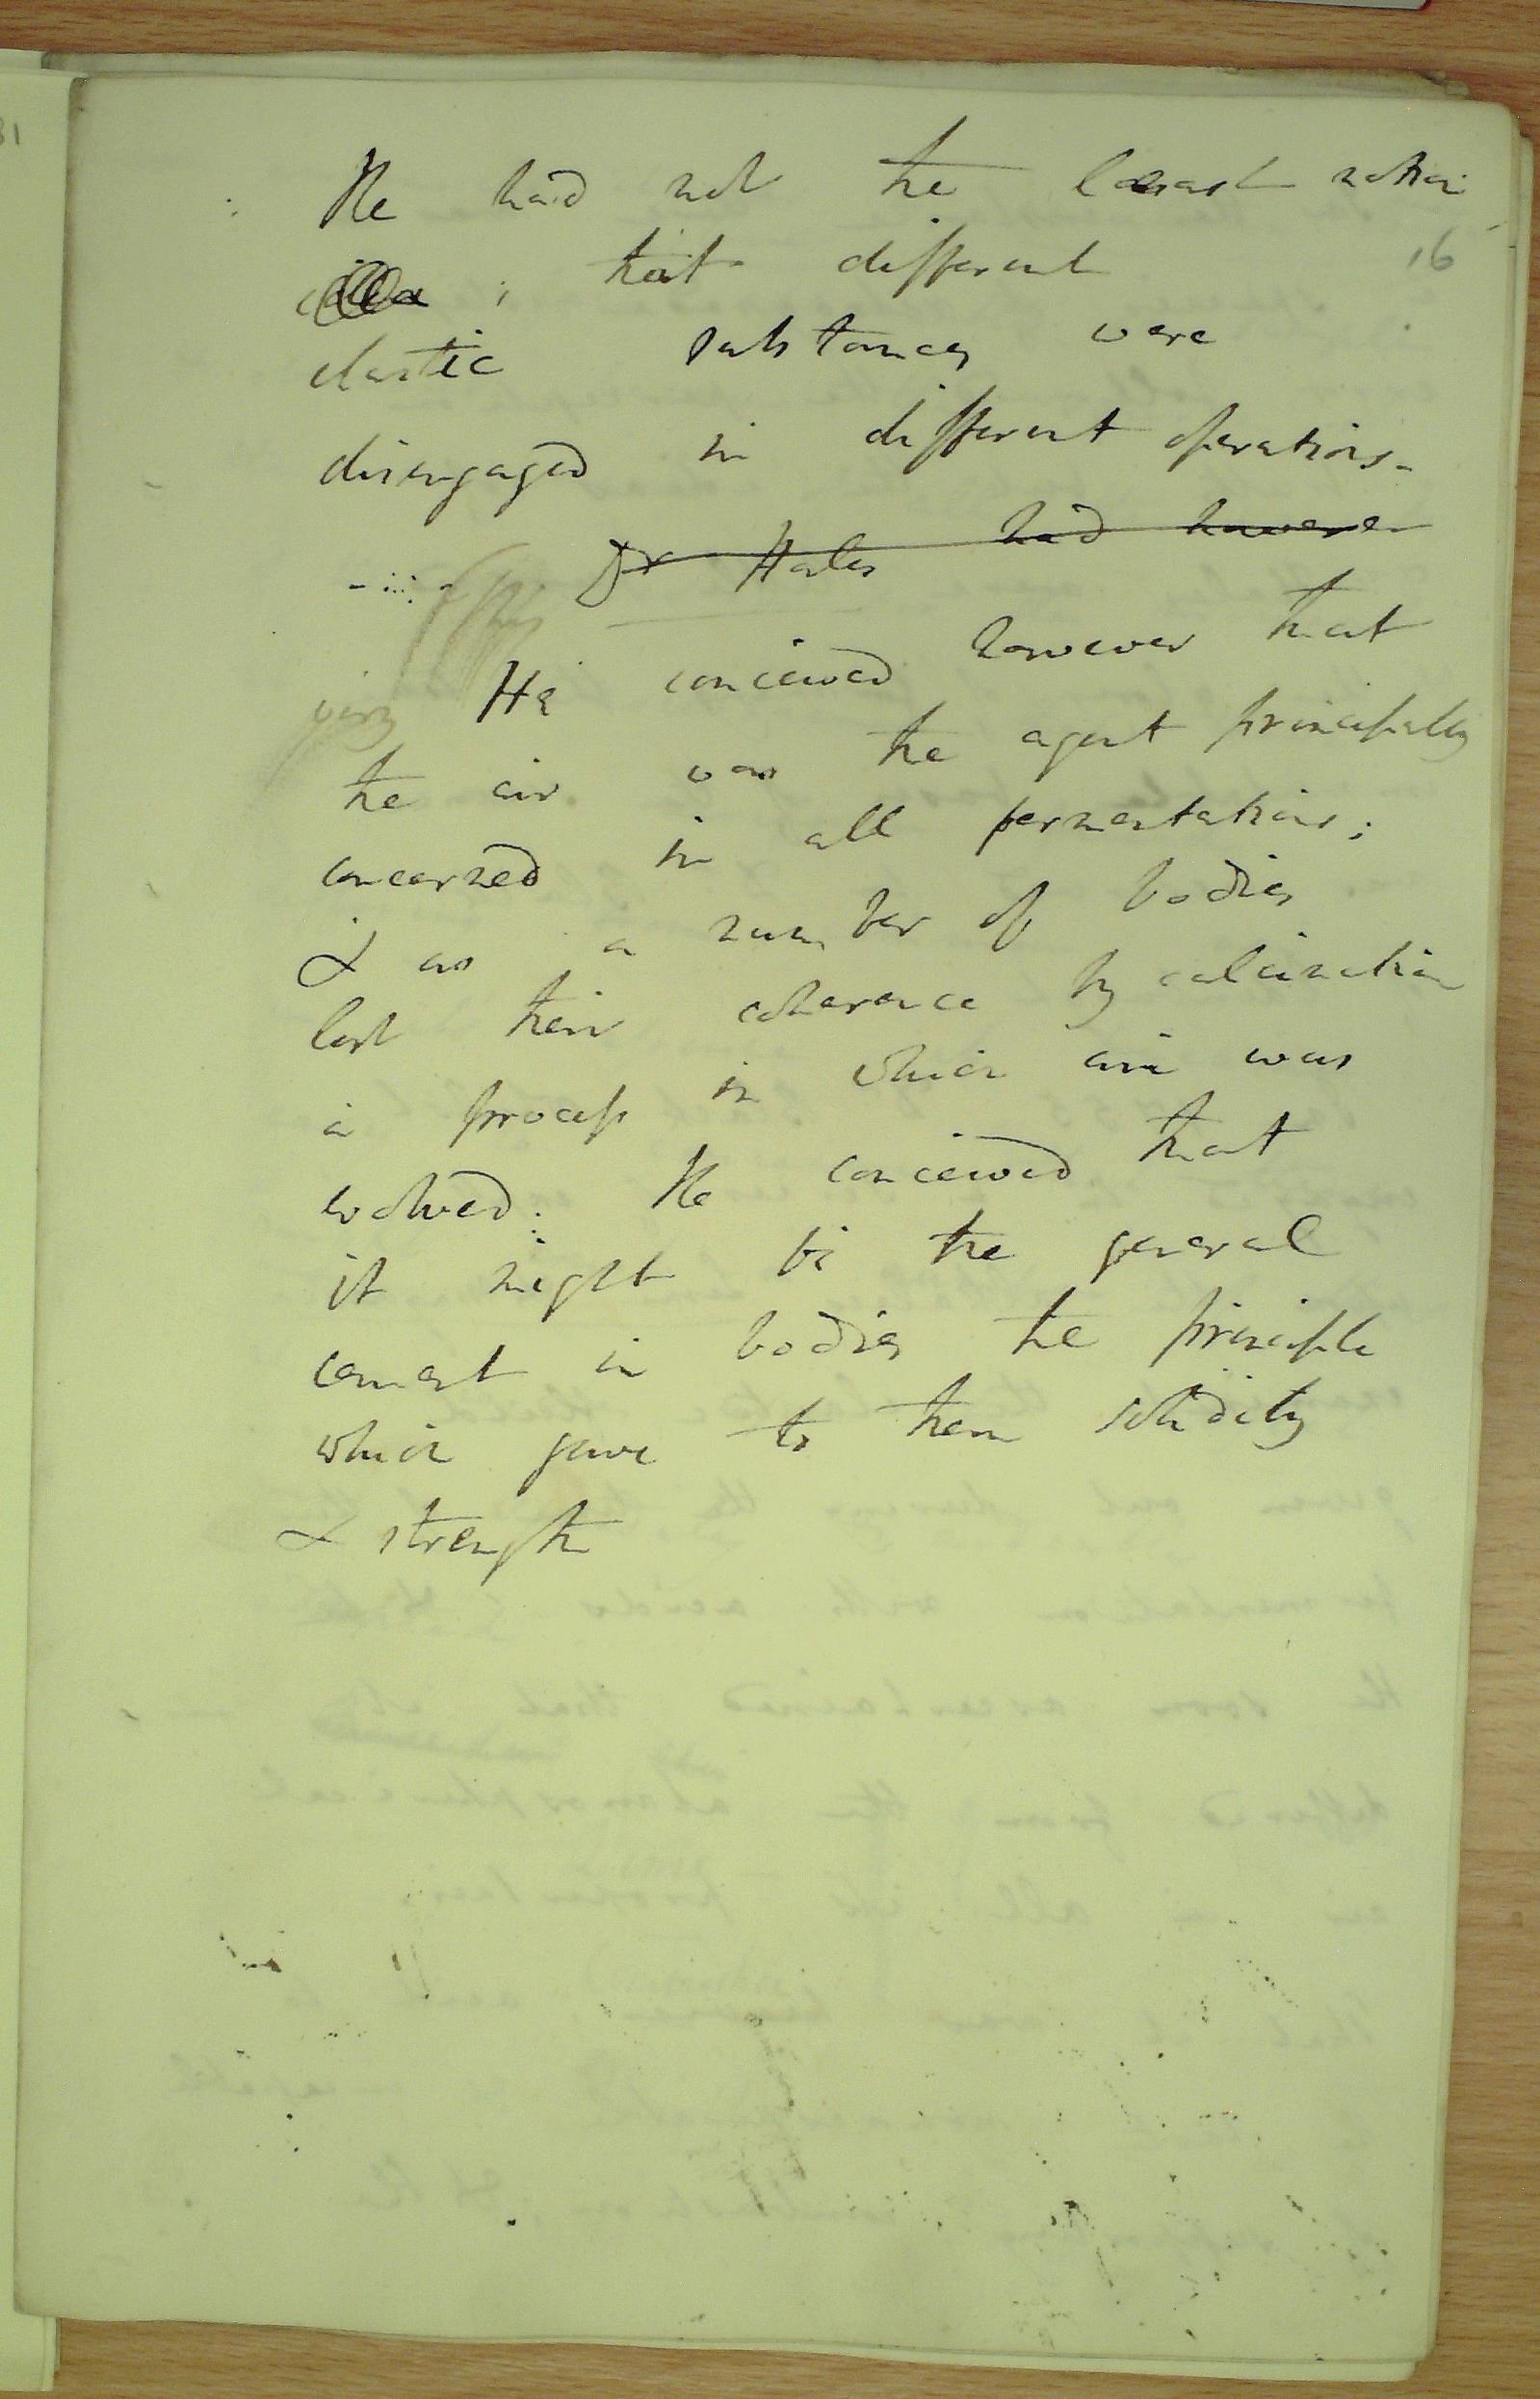 He had not the least notion
16
idea ; that different
elastic substances were
disengaged in different operations.
Dr Hales had however
He conceived however that
the air was the agent principally
concerned in all fermentations;
& as a number of bodies
lost their coherence by calcination
a process in which air was
evolved: He conceived that
it might be the general
cement in bodies the principle
which gave to them solidity
& strength